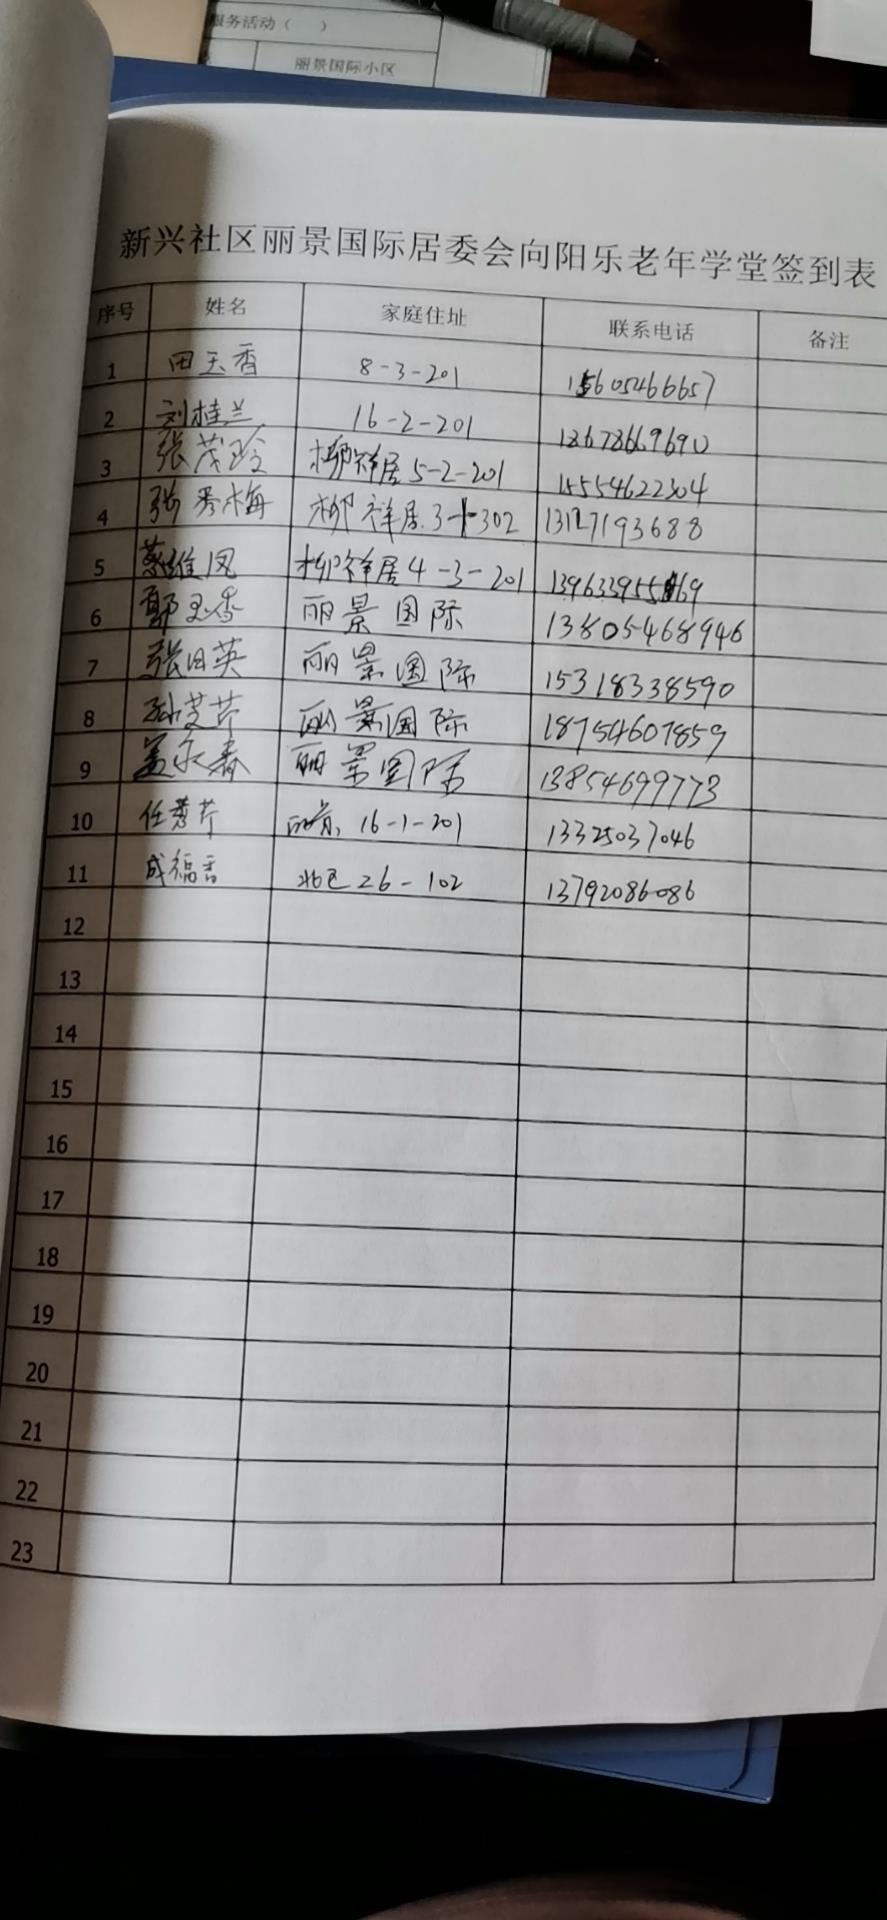 服务活动（ ）
丽景国际小区
新兴社区丽景国际居委会向阳乐老年学堂签到表
序号 姓名 家庭住址 联系电话 备注
1 田玉香 8-3-201 15605466657
2 刘桂兰 16-2-201 18678669690
3 张茂玲 柳祥居5-2-201 15554622304
4 张秀梅 柳祥居.3-1-302 13127193688
5 蔡维凤 柳祥居4-3-201
6 郭玉香 丽景国际 13805468946
7 张日英 丽景国际 15318338590
8 孙芝芹 丽景国际 18754607859
9 盖永春 丽景国际 13854699773
10 任秀芹 丽景, 16-1-201 13325037046
11 成福香 北区26-102 13792086086
12
13
14
15
16
17
18
19
20
21
22
23